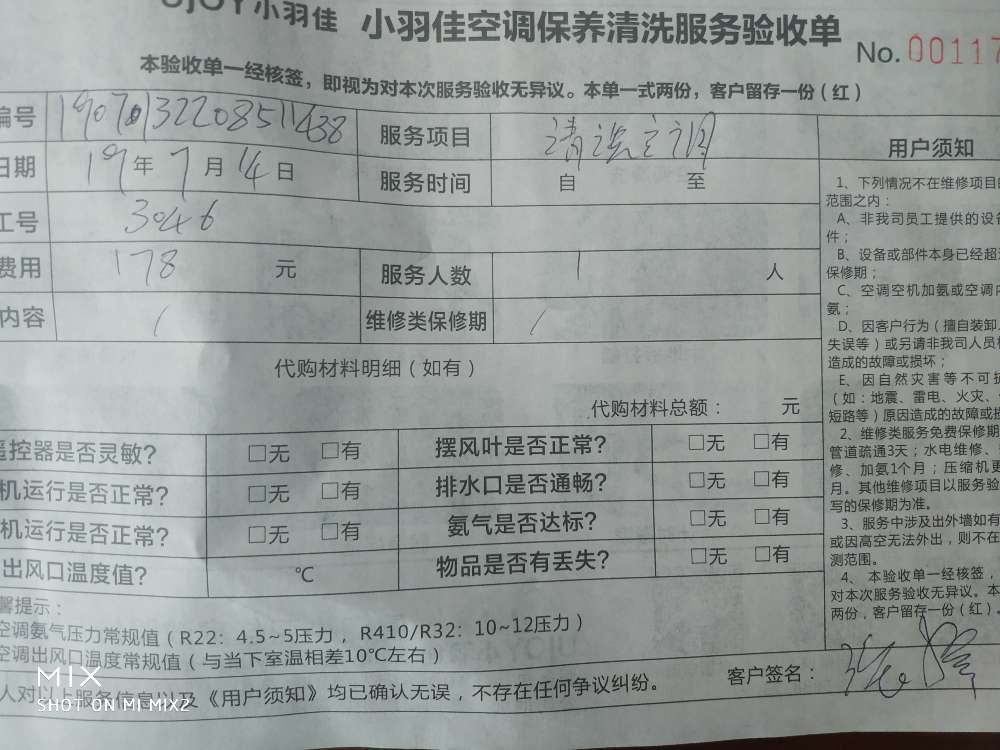 UJOY小羽佳 小羽佳空调保养清洗服务验收单
No. 00117
本验收单一经核签，即视为对本次服务验收无异议。本单一式两份，客户留存一份（红）
编号 服务项目 用户须知
日期 19年7月14日 服务时间 自 至
工号 3046
费用 178 元 服务人数 1 人
内容 / 维修类保修期 /
代购材料明细（如有）
代购材料总额： 元
遥控器是否灵敏? □无 □有 摆风叶是否正常? □无 □有
机运行是否正常? □无 □有 排水口是否通畅? □无 □有
机运行是否正常? □无 □有 氨气是否达标? □无 □有
出风口温度值? ℃ 物品是否有丢失? □无 □有
馨提示：
空调氨气压力常规值（R22：4.5~5压力，R410/R32：10~12压力）
空调出风口温度常规值（与当下室温相差10℃左右）
人对以上服务信息以及《用户须知》均已确认无误，不存在任何争议纠纷。
客户签名：
1、下列情况不在维修项目
范围之内：
A、非我司员工提供的设备
件；
B、设备或部件本身已经超
保修期；
C、空调空机加氨或空调内
氨；
D、因客户行为（擅自装卸
失误等）或另请非我司人员
造成的故障或损坏；
E、因自然灾害等不可
（如：地震、雷电、火灾、
短路等）原因造成的故障或
2、维修类服务免费保修期
管道疏通3天；水电维修、
修、加氨1个月；压缩机更
月。其他维修项目以服务验
写的保修期为准。
3、服务中涉及出外墙如有
或因高空无法外出，则不在
测范围。
4、本验收单一经核签，
对本次服务验收无异议。本
两份，客户留存一份（红）。
MIX
SHOT ON MI MIX2